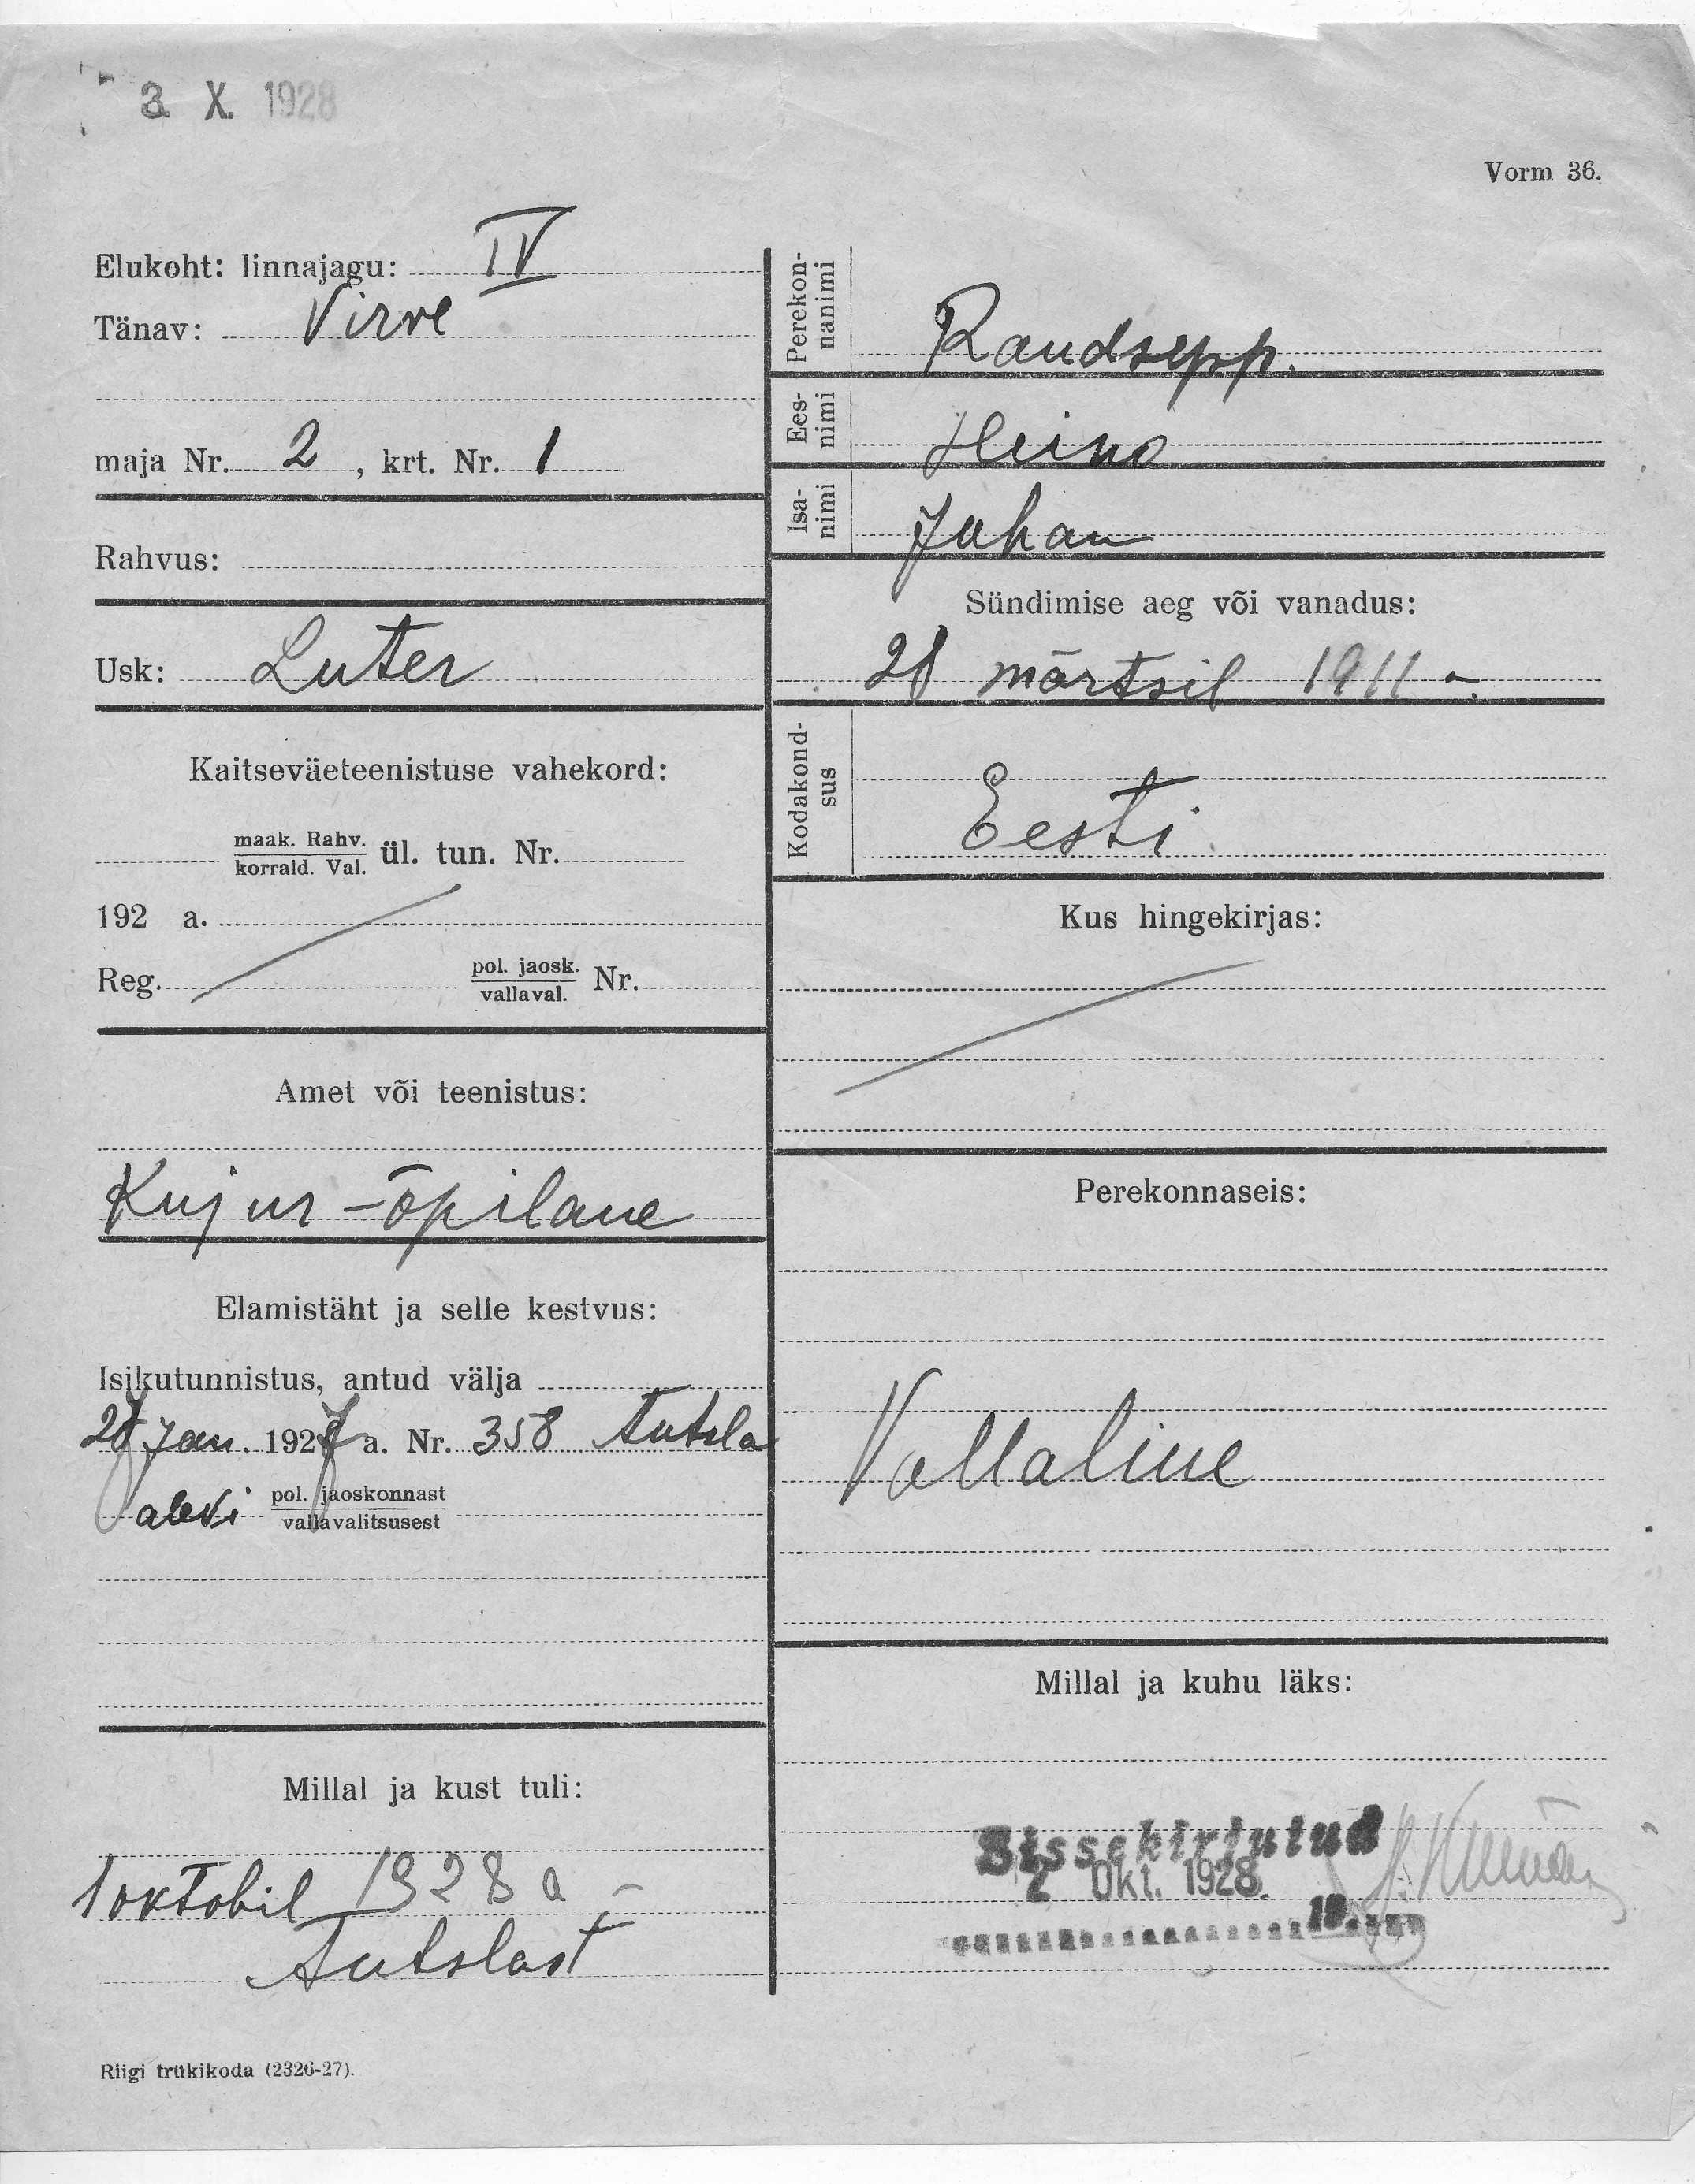 3. X. 1928
Vorm 36.
Elukoht: linnajagu: IV
Tänav: Virve
maja Nr. 2, krt. Nr. 1
Rahvus:
Usk: Luter
Kaitseväeteenistuse vahekord:
maak. Rahv.
korrald. Val. ül. tun. Nr.
192 a.
Reg. pol. jaosk.
vallaval. Nr.
Amet või teenistus:
Kujur-õpilane
Elamistäht ja selle kestvus:
Isikutunnistus, antud välja
Jan. 1927 a. Nr. 358 Antsla
alevi pol. jaoskonnast
vallavalitsusest
Millal ja kust tuli:
1 oktobil 1928 a –
Antslast
Riigi trükikoda (2326-27).
Perekon-
nanimi
Raudsepp.
Ees-
nimi
Heino
Isa-
nimi
Juhan
Sündimise aeg või vanadus:
28 märtsil 1911 –.
Kodakond-
sus
Eesti
Kus hingekirjas:
Perekonnaseis:
Vallaline
Millal ja kuhu läks:
Sissekirjutud
2 Okt. 1928.
19.